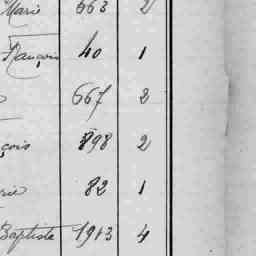 Marie 663 2
François 40 1
667 2
çois 898 2
rie 82 1
Baptiste 1913 4